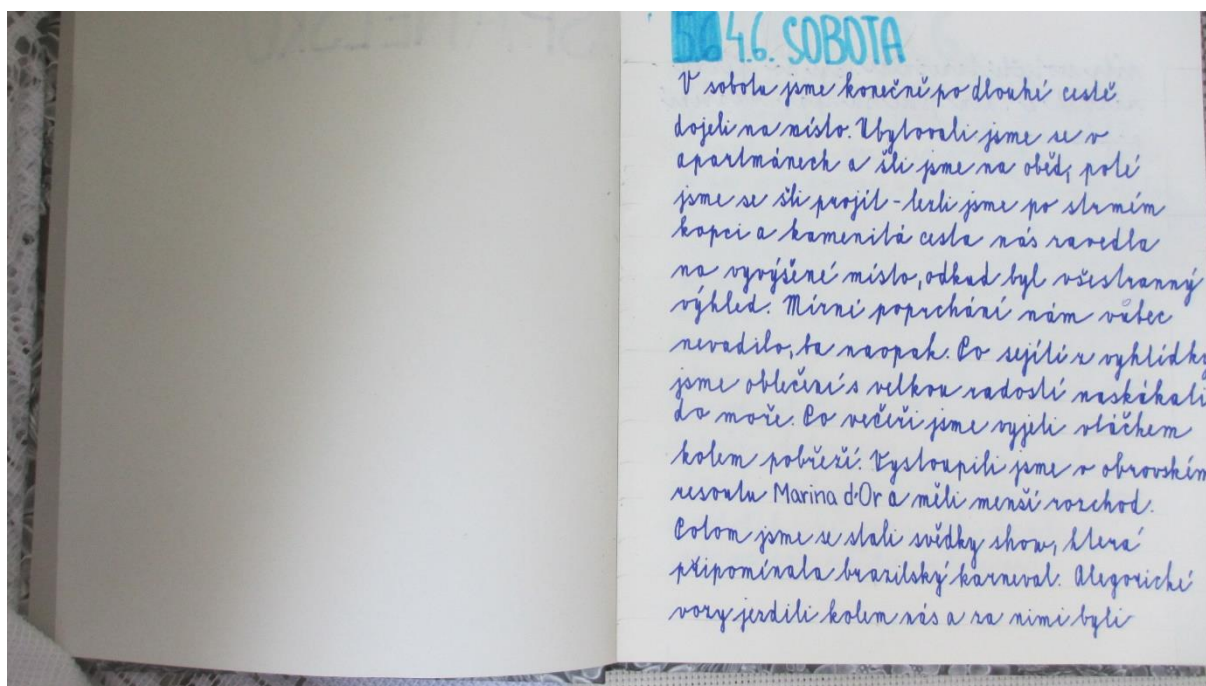 4.6. SOBOTA
V sobotu jsme konečně po dlouhé cestě
dojeli na místo. Ubytovali jsme se v
apartmánech a šli jsme na oběd, poté
jsme se šli projít - lezli jsme po strmém
kopci a kamenitá cesta nás zavedla
na vyvýšené místo, odkud byl všestranný
výhled. Mírné poprchání nám vůbec
nevadilo, ba naopak. Po sejítí z vyhlídky
jsme oblečení s velkou radostí naskákali
do moře. Po večeři jsme vyjeli vláčkem
kolem pobřeží. Vystoupili jsme v obrovském
resortu Marina d'Or a měli menší rozchod.
Potom jsme se stali svědky show, která
připomínala brazilský karneval. Alegorické
vozy jezdili kolem nás a za nimi byli